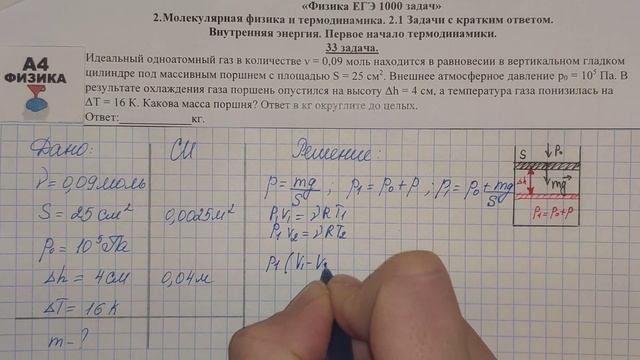 «Физика ЕГЭ 1000 задач»
2.Молекулярная физика и термодинамика. 2.1 Задачи с кратким ответом.
Внутренняя энергия. Первое начало термодинамики.
33 задача.
А4
ФИЗИКА
Идеальный одноатомный газ в количестве ν = 0,09 моль находится в равновесии в вертикальном гладком
цилиндре под массивным поршнем с площадью S = 25 см². Внешнее атмосферное давление p₀ = 10⁵ Па. В
результате охлаждения газа поршень опустился на высоту Δh = 4 см, а температура газа понизилась на
ΔT = 16 К. Какова масса поршня? Ответ в кг округлите до целых.
Ответ:____________кг.
Дано:
ν = 0,09 моль
S = 25 см²
p₀ = 10⁵ Па
Δh = 4 см
ΔT = 16 К
m - ?
СИ
0,0025 м²
0,04 м
Решение:
p = mg/S ; p₁ = p₀ + p ; p₁ = p₀ + mg/S
p₁V₁ = νRT₁
p₁V₂ = νRT₂
p₁(V₁ - V₂
S p₀
Δh mg
p₁ = p₀ + p